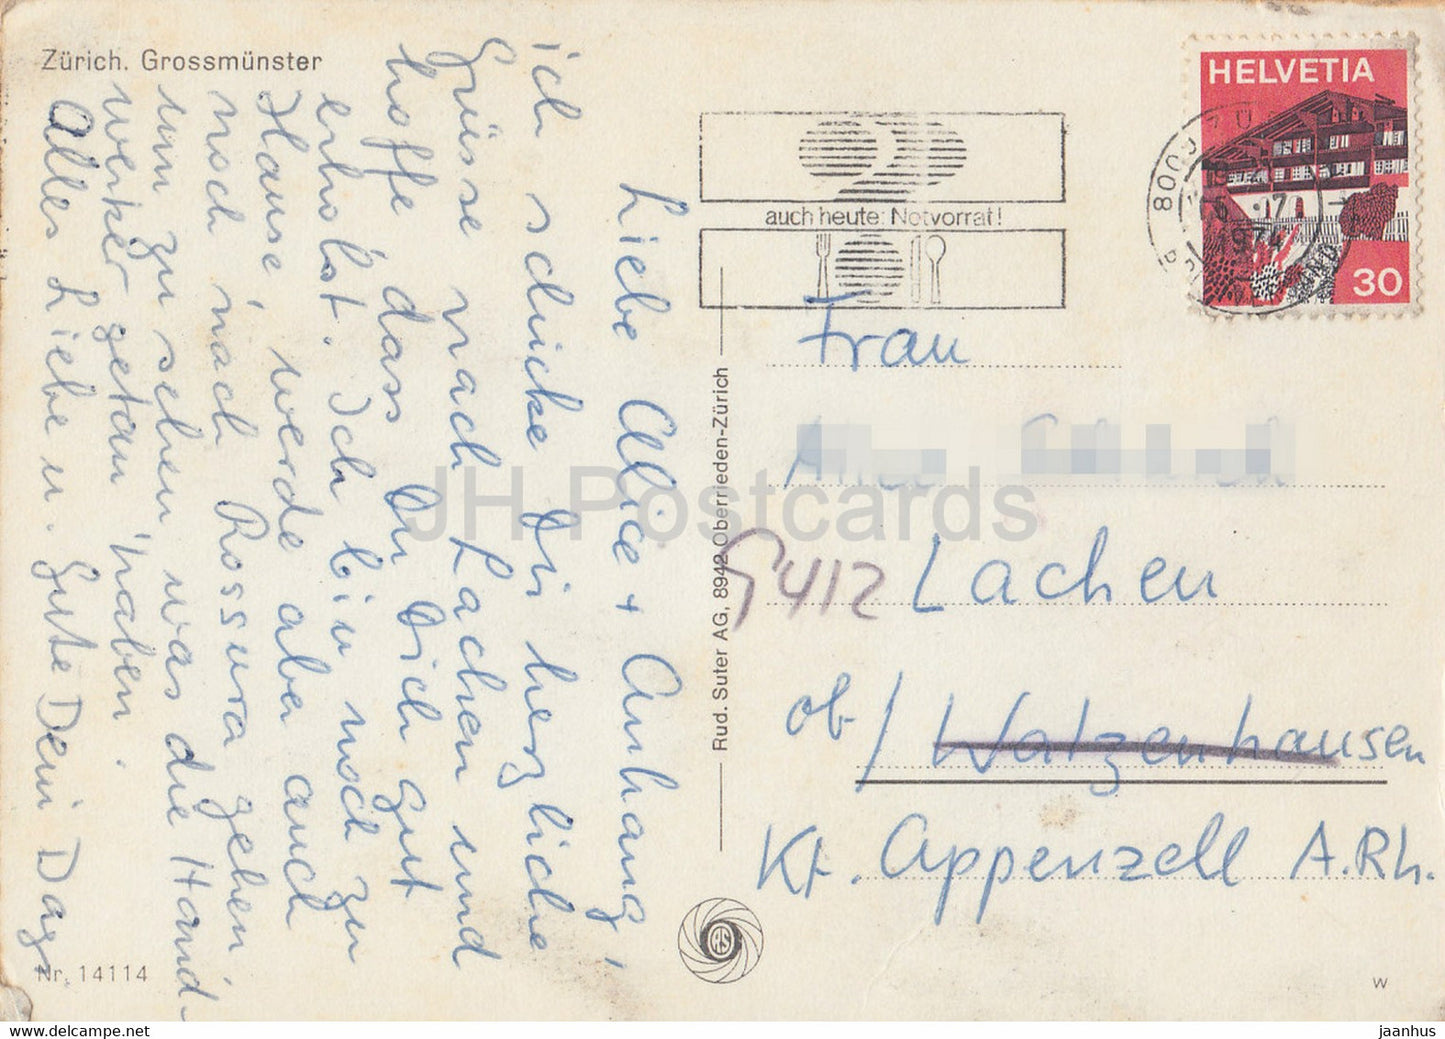 Zürich. Grossmünster
Liebe Alice + Anhang,
ich schicke Dir herzliche
Grüsse nach Lachen und
hoffe dass Du Dich gut
erholst. Ich bin noch zu
Hause werde aber auch
noch nach Rossura gehen
um zu sehen was die Hand-
werker getan haben.
Alles Liebe u. Gute Deine Dagi
Nr. 14114
Rud. Suter AG, 8942 Oberrieden-Zürich
RS
auch heute: Notvorrat!
HELVETIA
30
5.-7
1974
Frau
9412 Lachen
ob/ Walzenhausen
Kt. Appenzell A.Rh.
W
JH Postcards
www.hippostcard.com
jaanhus